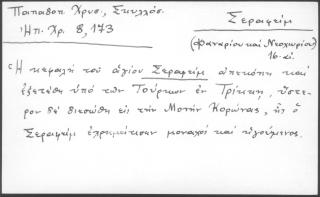 Παπαδοπ. Χρυσ., Σκυλλόσ.
Ἠπ. Χρ. 8, 173
Σεραφείμ
(Φαναρίου καὶ Νεοχωρίου)
16. αἰ.
Ἡ κεφαλὴ τοῦ ἁγίου Σεραφεὶμ ἀπεκόπη καὶ
ἐξετέθη ὑπὸ τῶν Τούρκων ἐν Τρίκκῃ, ὕστε-
ρον δὲ διεσώθη εἰς τὴν Μονὴν Κορώνας, ἧς ὁ
Σεραφεὶμ ἐχρημάτισεν μοναχὸς καὶ ἡγούμενος.